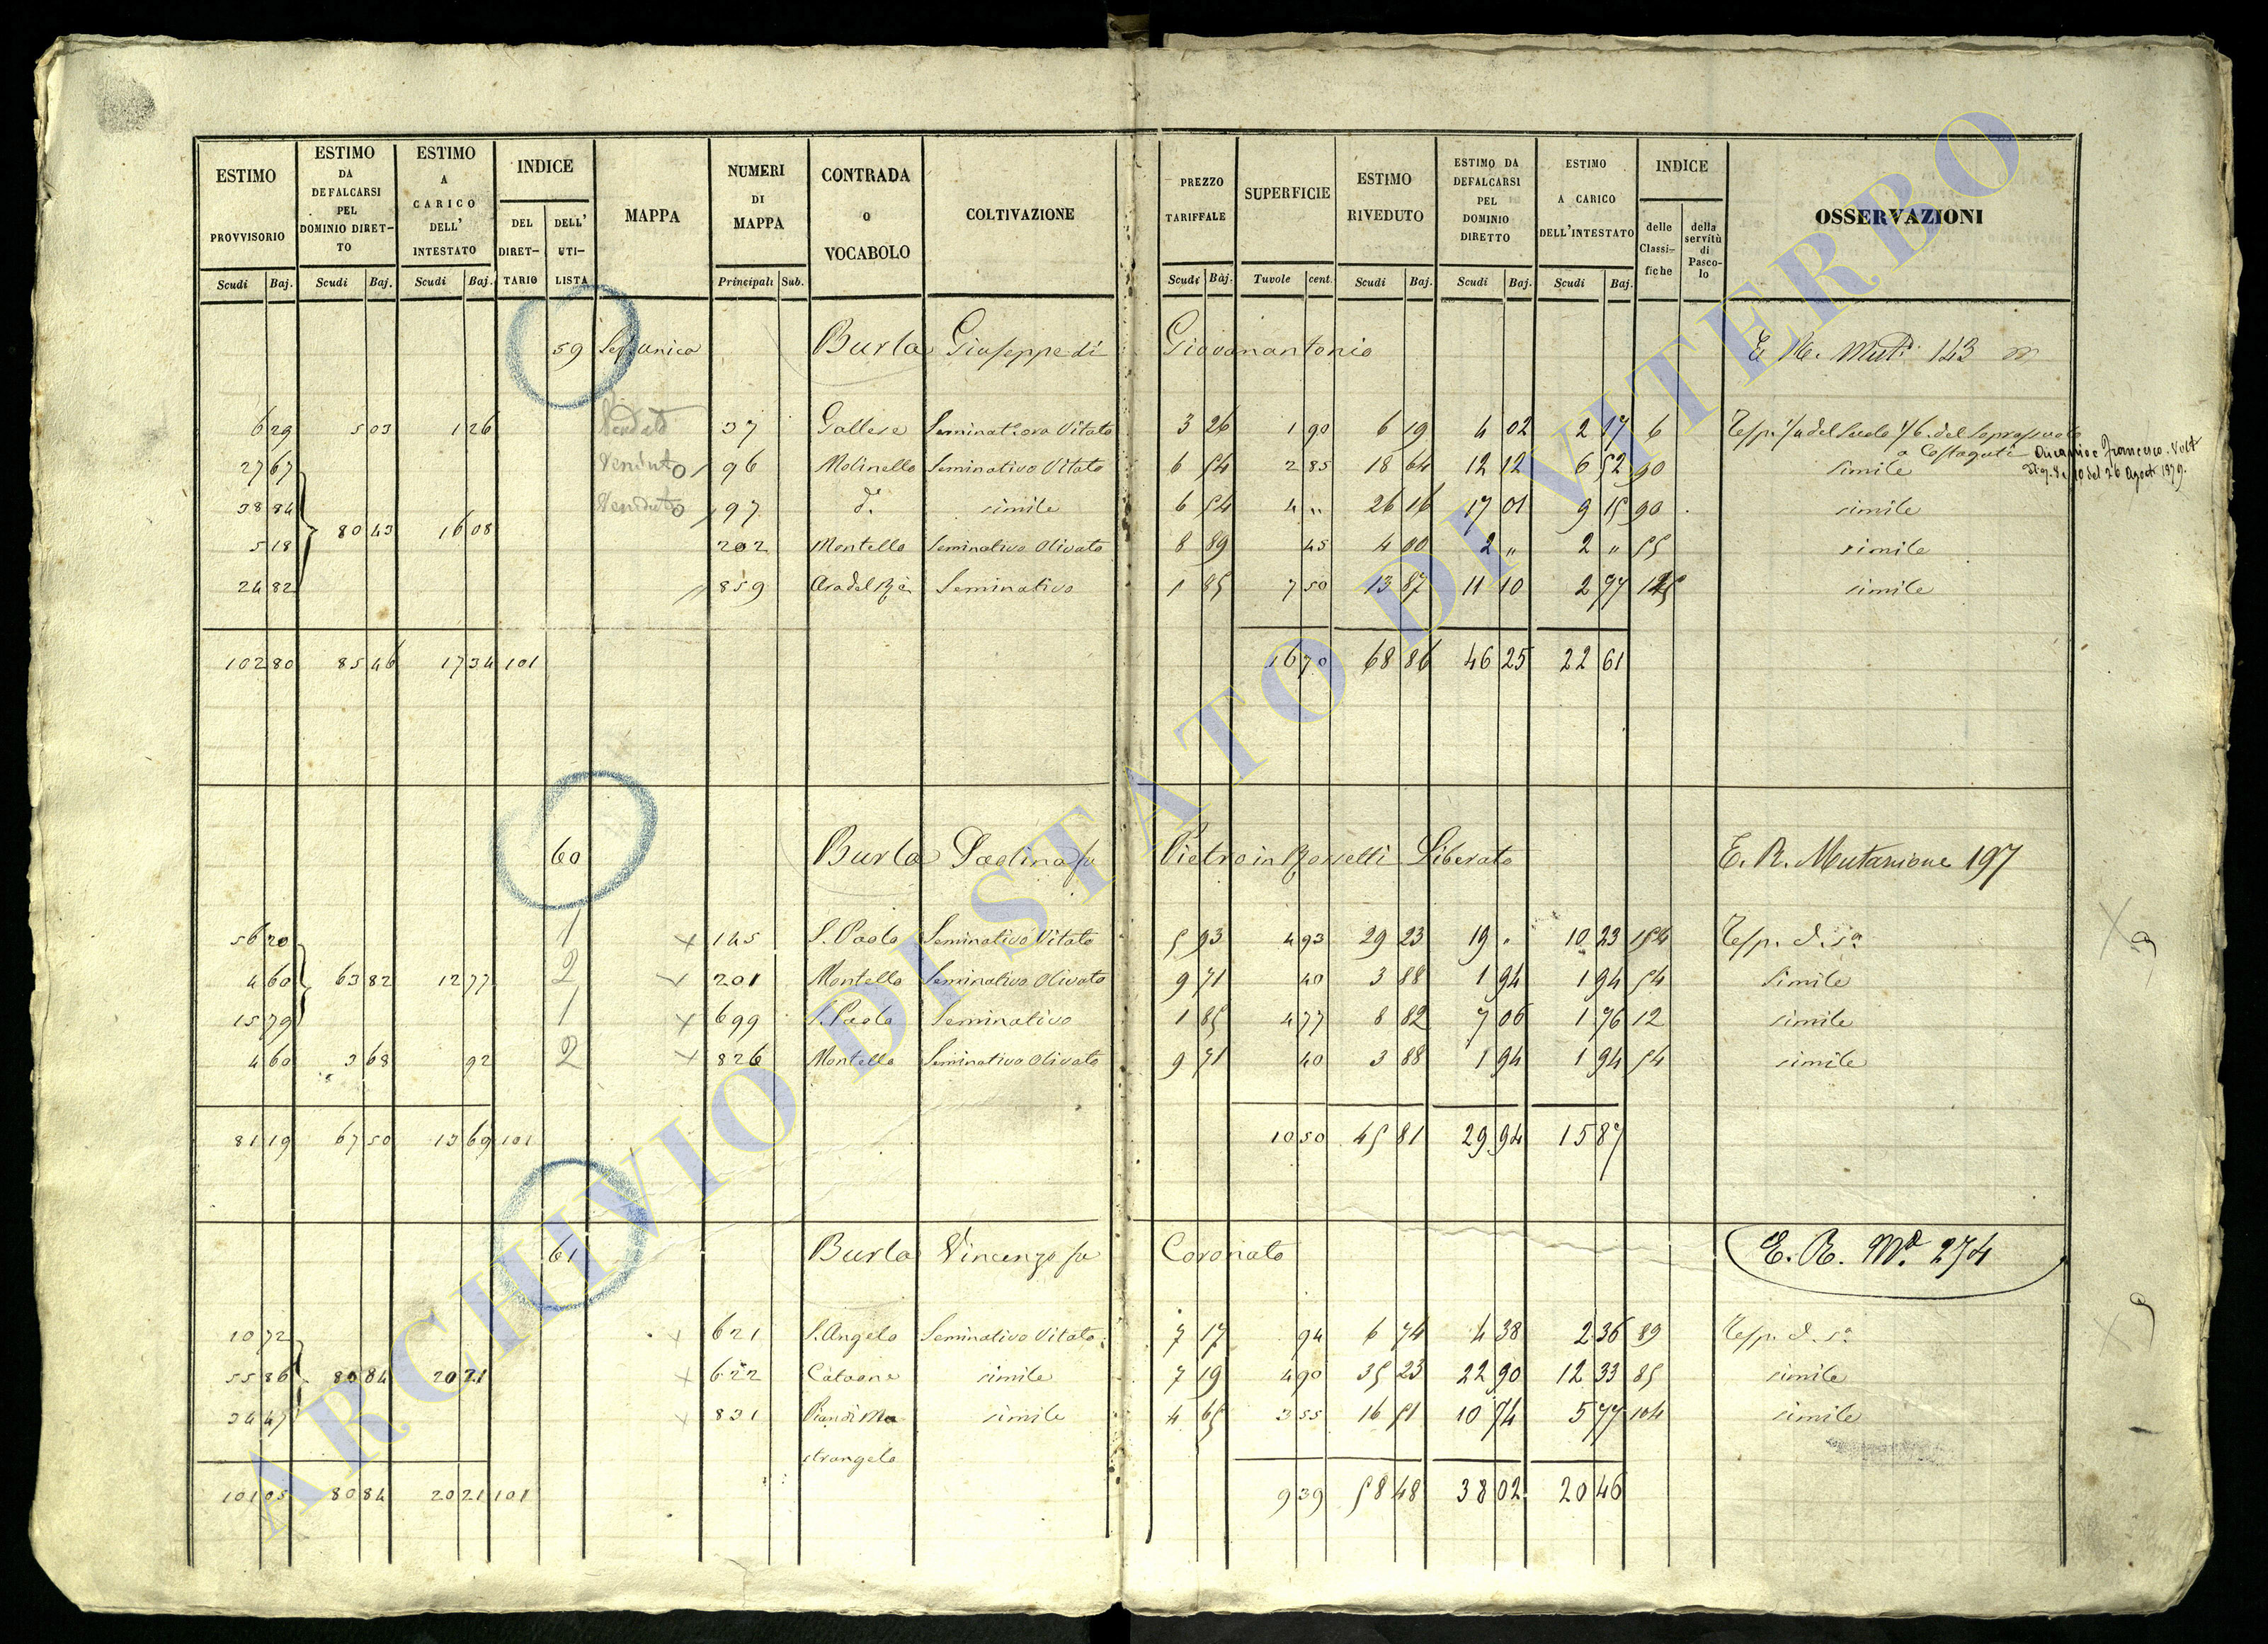 ESTIMO PROVVISORIO Scudi Baj. ESTIMO DA DEFALCARSI PEL DOMINIO DIRETTO Scudi Baj. ESTIMO A CARICO DELL' INTESTATO Scudi Baj. INDICE DEL DIRETTARIO DELL' UTILISTA MAPPA NUMERI DI MAPPA Principali Sub. CONTRADA O VOCABOLO COLTIVAZIONE PREZZO TARIFFALE Scudi Baj. SUPERFICIE Tavole cent. ESTIMO RIVEDUTO Scudi Baj. ESTIMO DA DEFALCARSI PEL DOMINIO DIRETTO Scudi Baj. ESTIMO A CARICO DELL'INTESTATO Scudi Baj. INDICE delle Classifiche della servitù di Pascolo OSSERVAZIONI
59 Sez. unica Burla Giuseppe di Giovanantonio E. R. Mut. 143
6 29 5 03 1 26 Venduto 37 Gallese Seminativo Vitato 3 26 1 90 6 19 4 02 2 17 6 Resp. del Suolo 1/6 del Soprasuolo
a Costaguti
Francesco Volt
del 26 Agosto 1879.
27 67 Venduto 96 Molinello Seminativo Vitato 6 54 2 85 18 64 12 12 6 52 90 simile
38 84 Venduto 97 d.o simile 6 54 4 " 26 16 17 01 9 15 90 simile
80 43 16 08
5 18 202 Montello Seminativo Olivato 8 89 45 4 00 2 " 2 " 55 simile
24 82 859 Ara del Rè Seminativo 1 85 7 50 13 87 11 10 2 77 125 simile
102 80 85 46 17 34 101 16 70 68 86 46 25 22 61
60 Burla Paolina fu Pietro in Rosselli Liberato E. R. Mutazione 197
56 20 1 145 S. Paolo Seminativo Vitato 5 93 4 93 29 23 19 . 10 23 154 Resp. d. s.a
4 60 63 82 12 77 2 201 Montello Seminativo Olivato 9 71 40 3 88 1 94 1 94 54 simile
15 79 1 699 S. Paolo Seminativo 1 85 4 77 8 82 7 06 1 76 12 simile
4 60 3 68 92 2 826 Montello Seminativo Olivato 9 71 40 3 88 1 94 1 94 54 simile
81 19 67 50 13 69 101 10 50 45 81 29 94 15 87
61 Burla Vincenzo fu Coronato E. R. M.a 274
10 72 621 S. Angelo Seminativo Vitato 7 17 94 6 74 4 38 2 36 89 Resp. d. s.a
55 86 80 84 20 21 622 Catoane simile 7 19 4 90 35 23 22 90 12 33 85 simile
34 47 831 Pian di Ma simile 4 65 3 55 16 51 10 74 5 77 104 simile
strangelo
101 05 80 84 20 21 101 9 39 58 48 38 02 20 46
ARCHIVIO DI STATO DI VITERBO